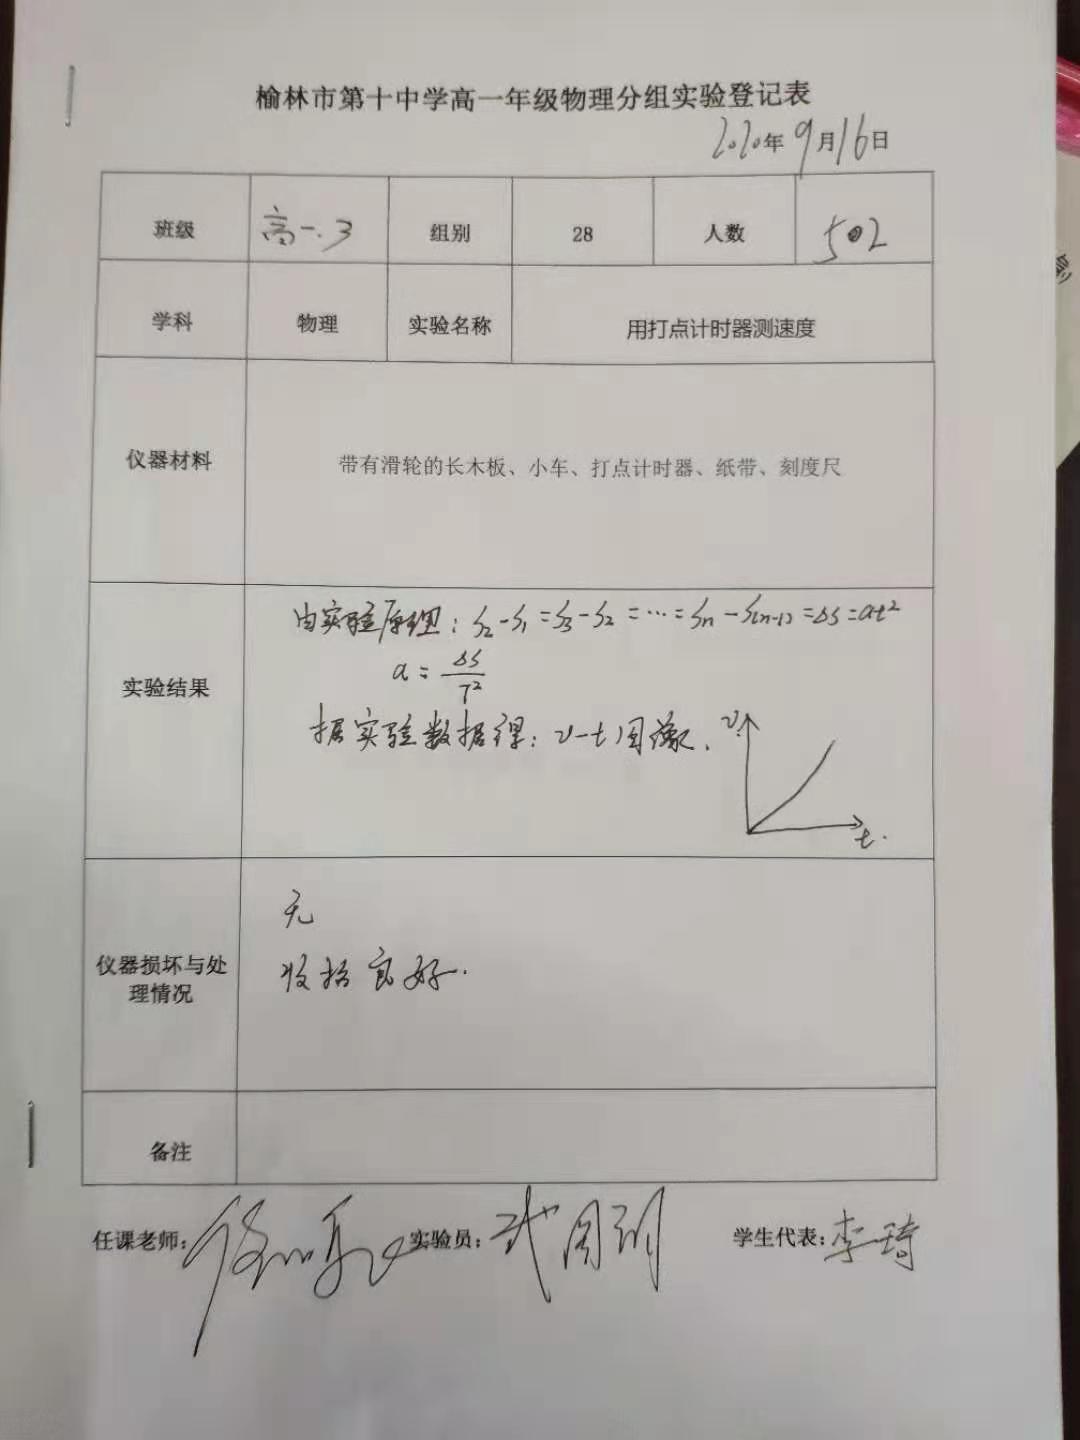 榆林市第十中学高一年级物理分组实验登记表
2020年9月16日
班级 高一.3 组别 28 人数
学科 物理 实验名称 用打点计时器测速度
仪器材料 带有滑轮的长木板、小车、打点计时器、纸带、刻度尺
实验结果
由实验原理: S₂-S₁=S₃-S₂=…=Sn-S(n-1)=ΔS=at²
a=ΔS/T²
据实验数据得: v-t图像.
v
t.
仪器损坏与处
理情况
无
收拾良好.
备注
任课老师: 实验员: 学生代表:李琦